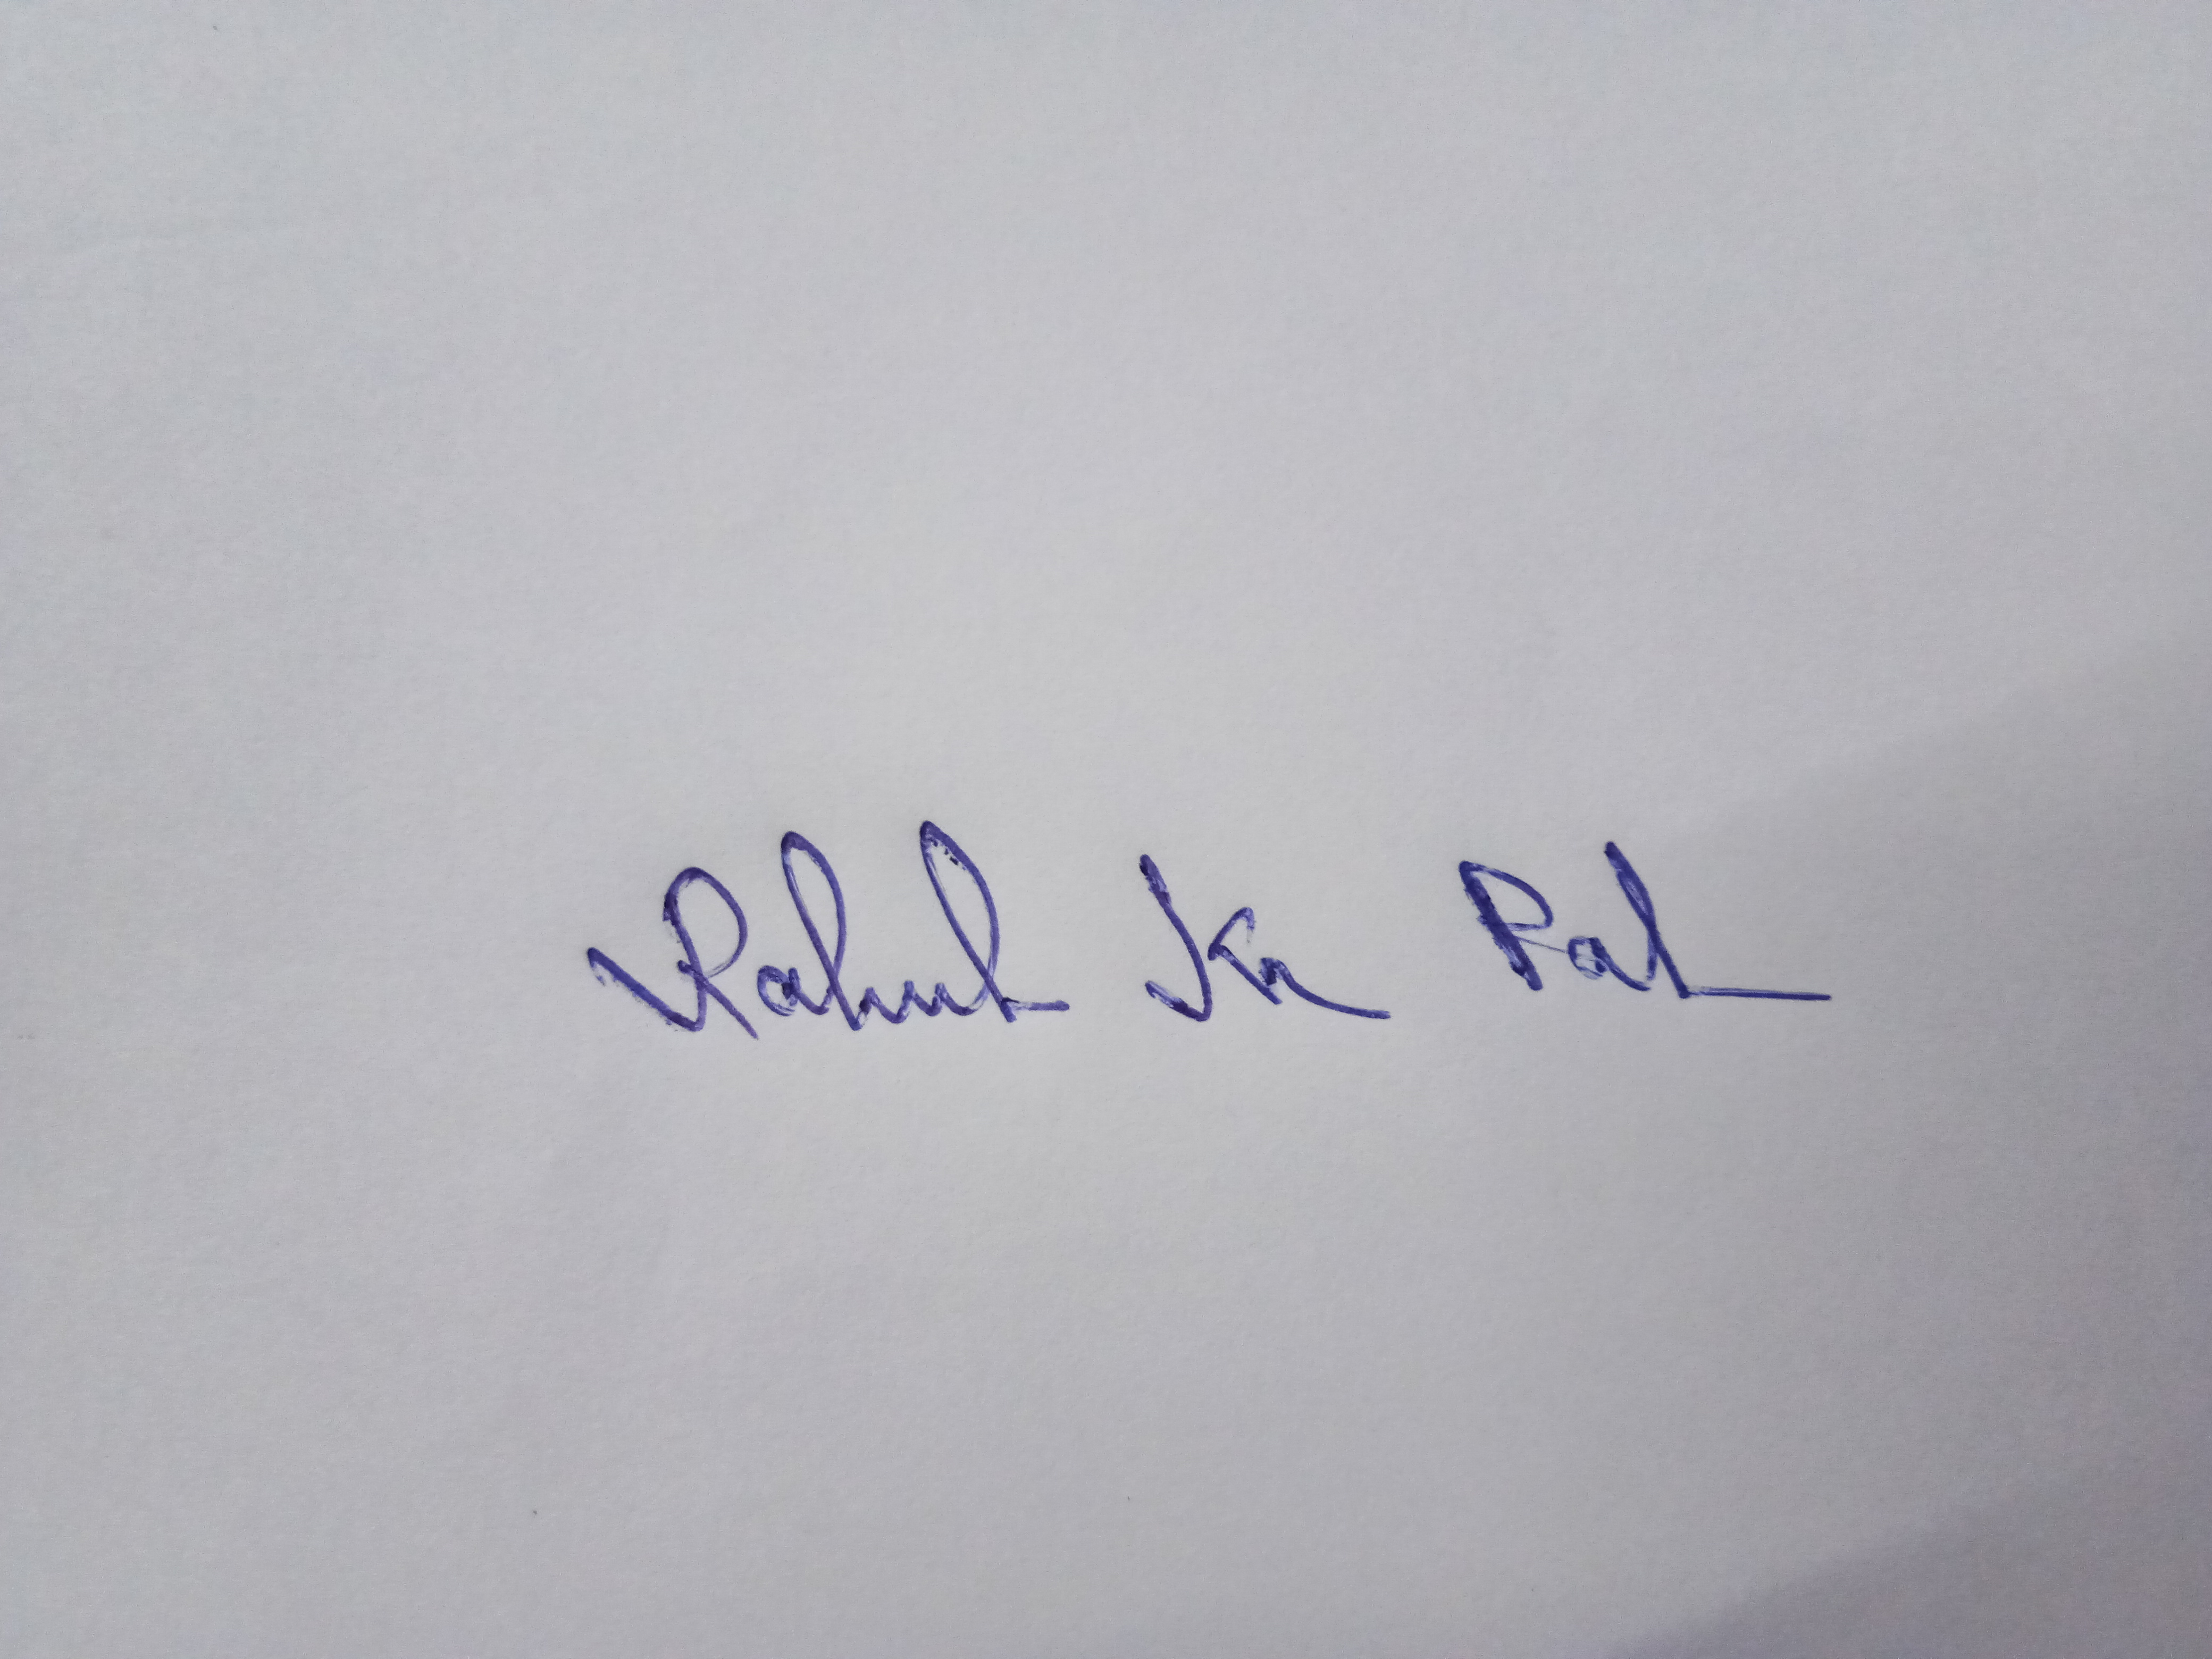 Rahul Kr Pal